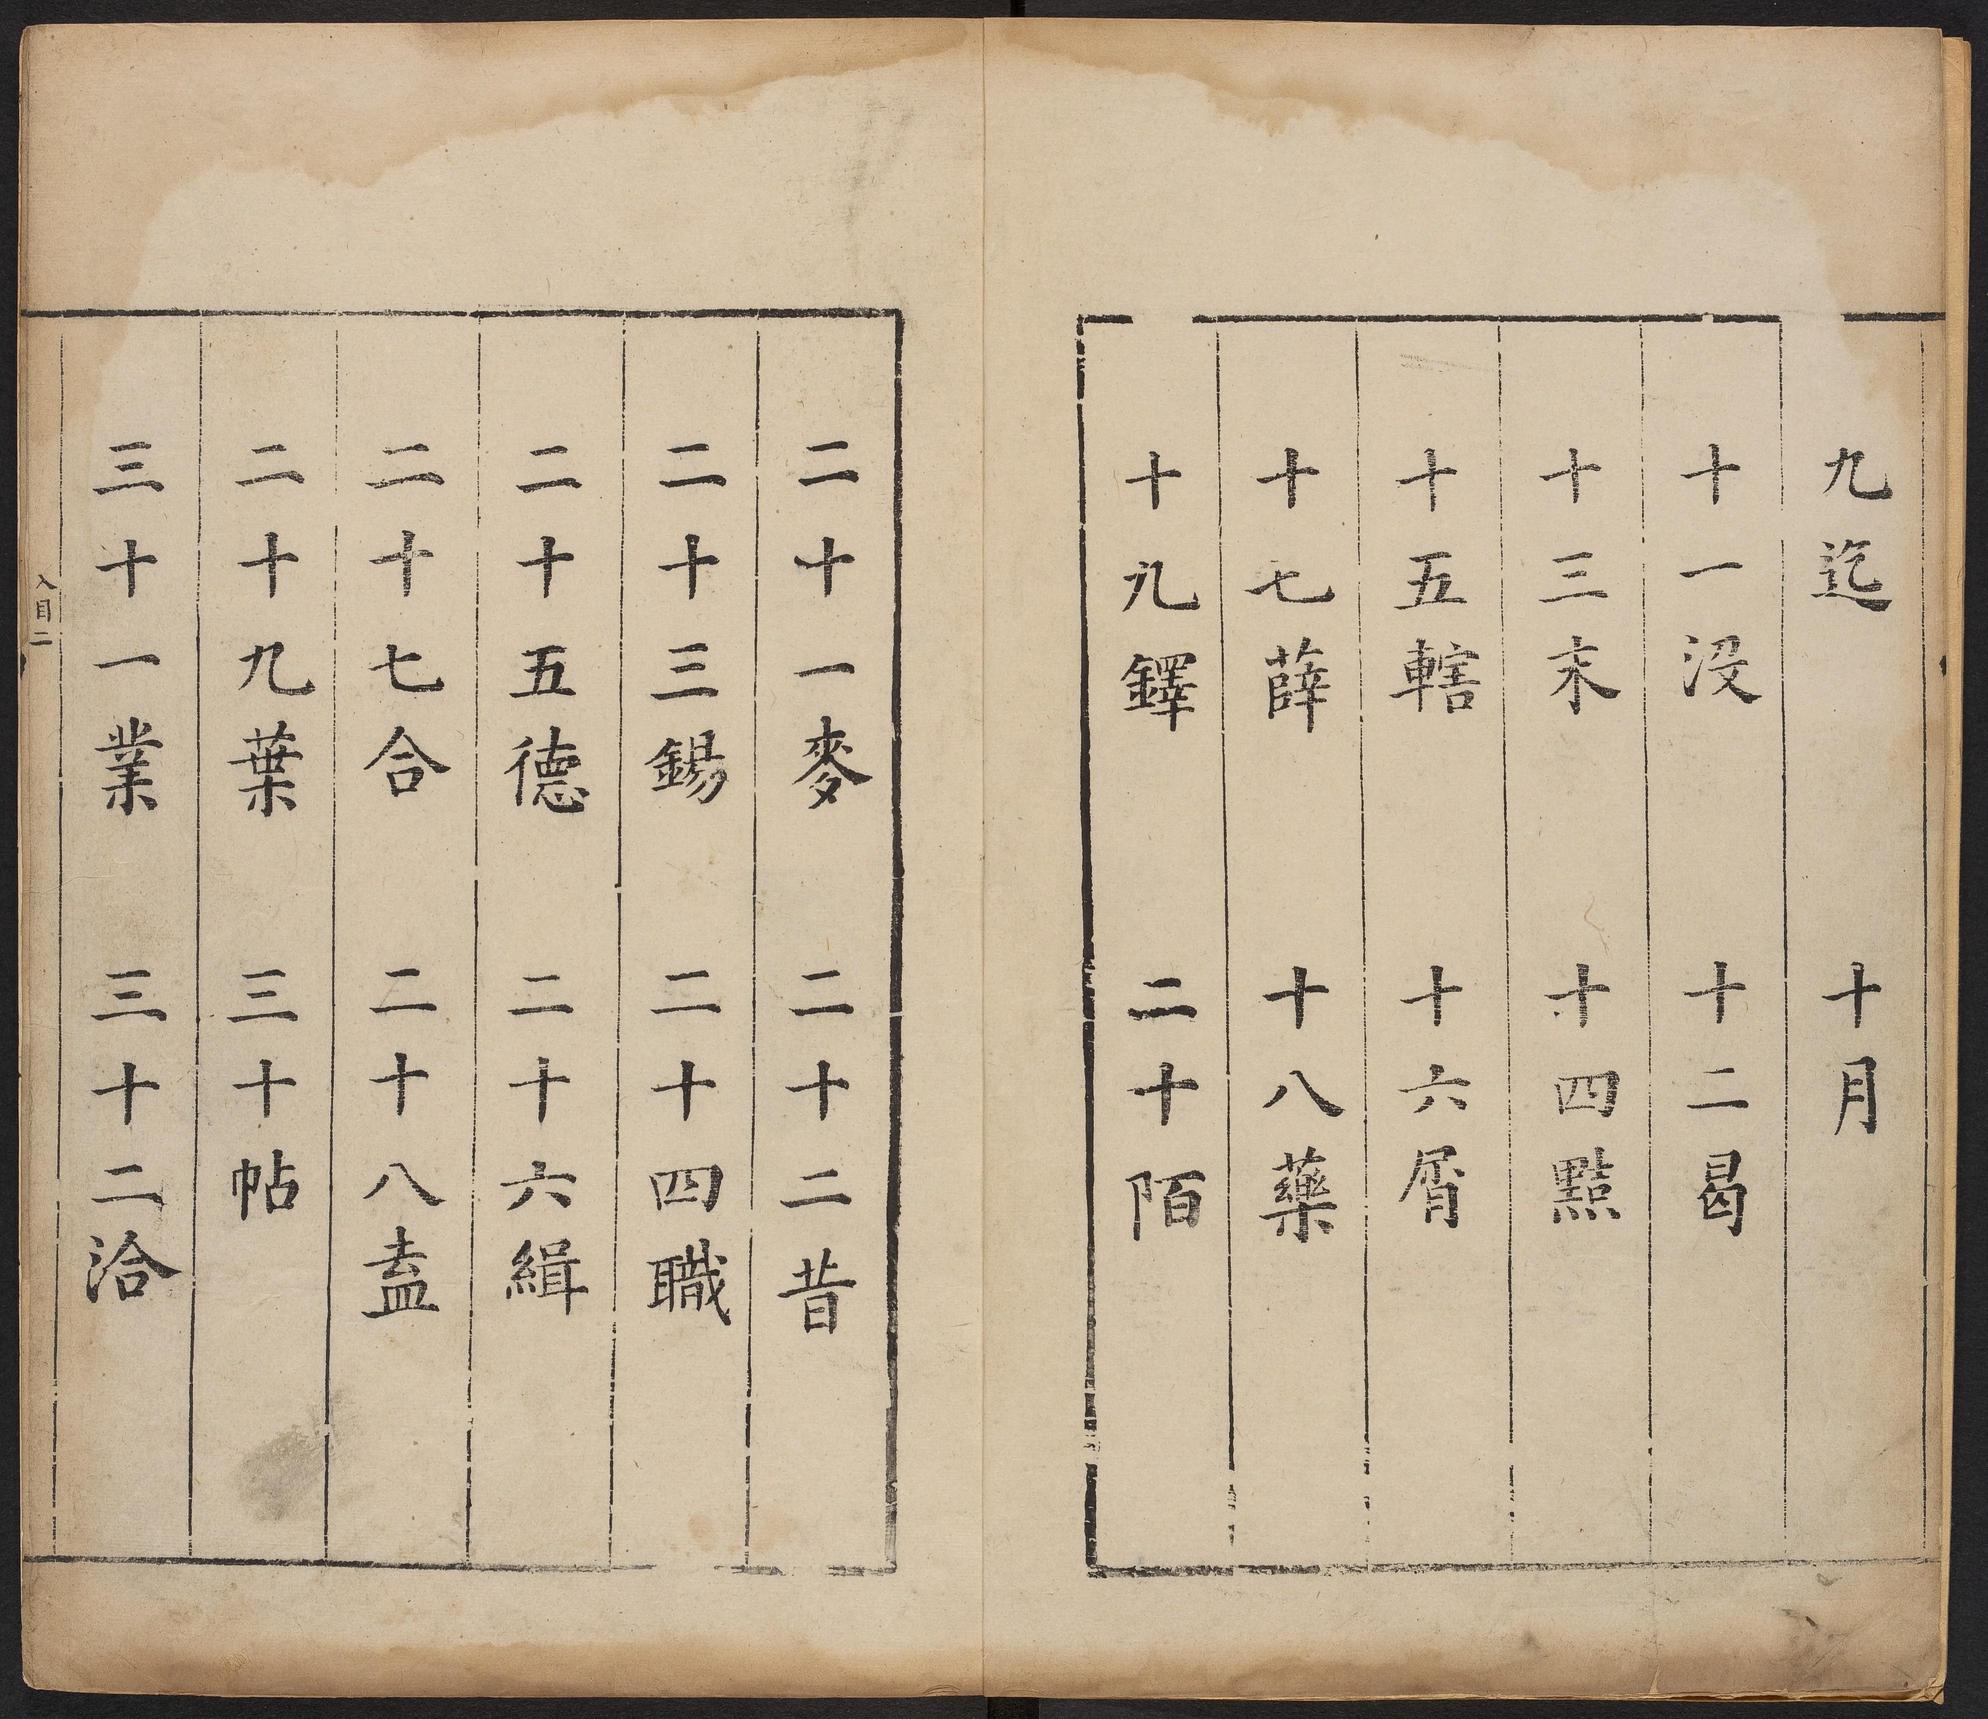 九迄　十月
十一沒　十二曷
十三末　十四黠
十五轄　十六屑
十七薛　十八藥
十九鐸　二十陌
二十一麥　二十二昔
二十三錫　二十四職
二十五德　二十六緝
二十七合　二十八盍
二十九葉　三十帖
三十一業　三十二洽
入目二